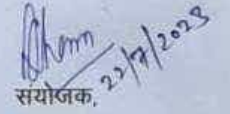 22/7/2023
संयोजक,